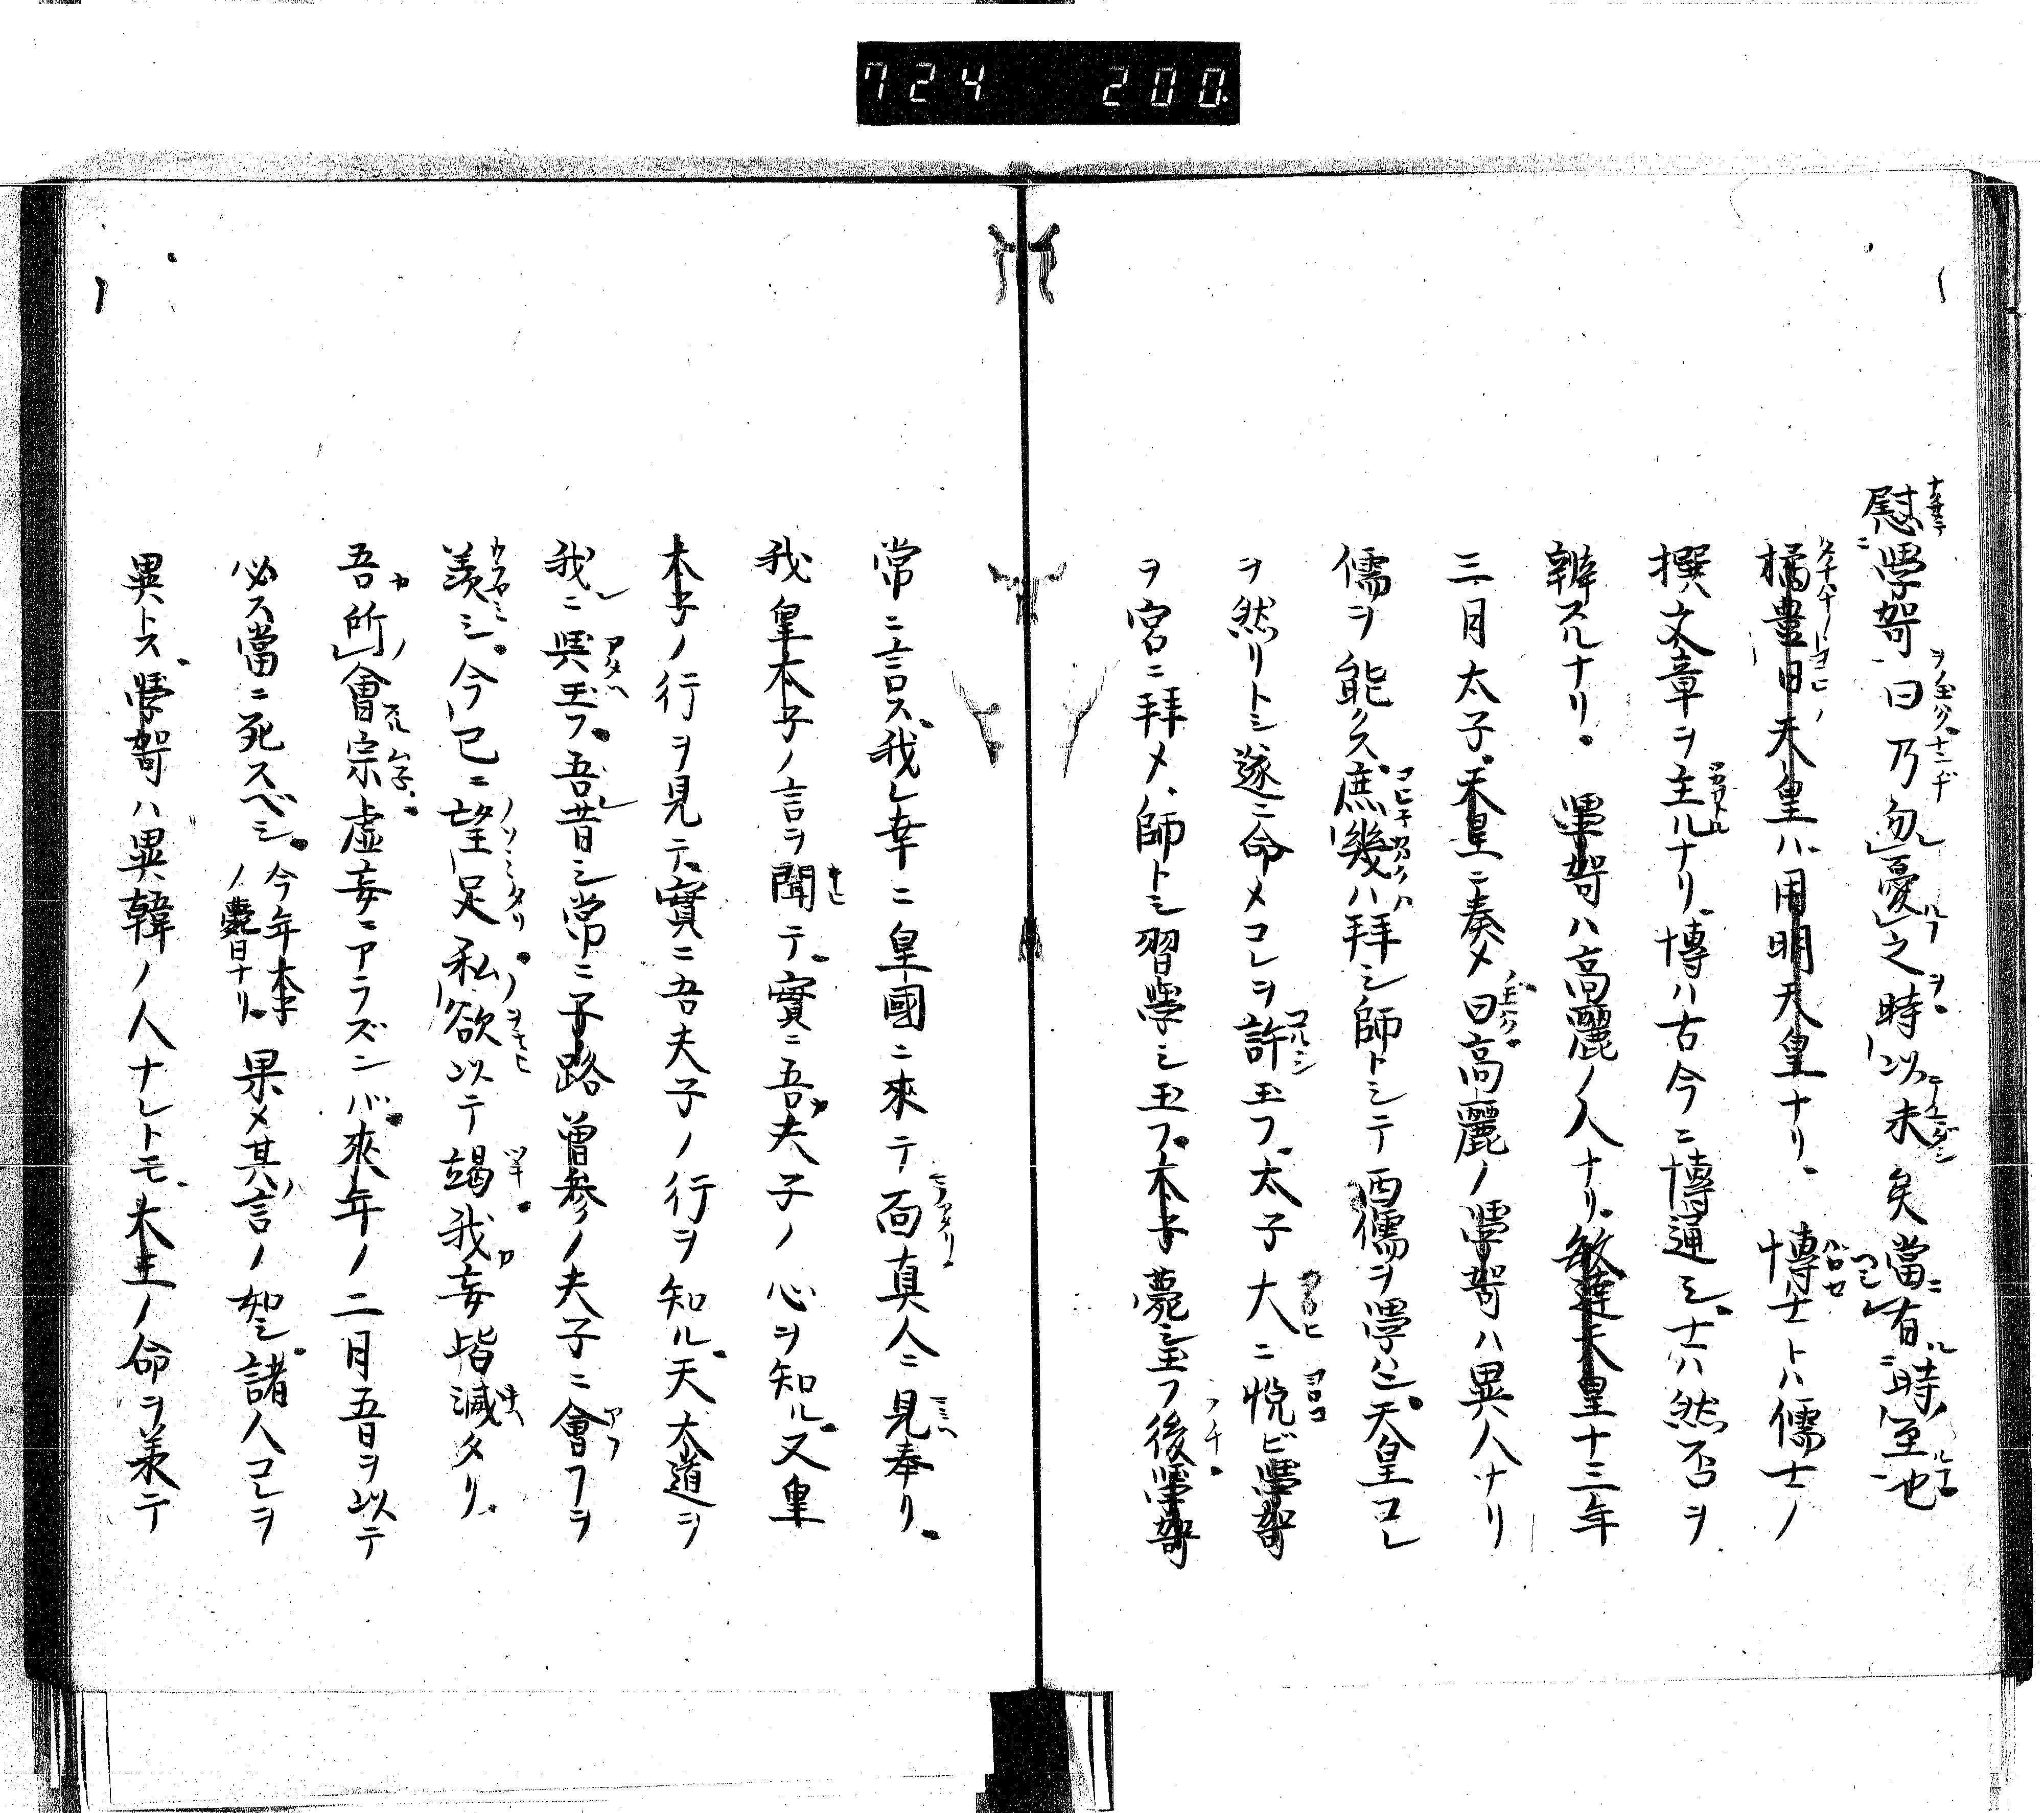 724 200.
慰學哿曰乃勿憂之時以未矣當有時至也
橘豊日天皇ハ用明天皇ナリ 博士トハ儒士ノ
撰文章ヲ主ルナリ博ハ古今ニ博通シ士ハ然否ヲ
辨スルナリ 學哿ハ高麗ノ人ナリ敏達天皇十三年
三月太子天皇ニ奏メ曰高麗ノ學哿ハ異人ナリ
儒ヲ能クス庶幾ハ拜シ師トシテ西儒ヲ學ン天皇コレ
ヲ然リトシ遂ニ命メコレヲ許玉フ太子大ニ悦ビ學哿
ヲ宮ニ拜メ師トシ習學シ玉フ太子薨玉フ後學哿
常ニ言ス我レ幸ニ皇國ニ來テ面真人ニ見奉リ
我皇太子ノ言ヲ聞テ實ニ吾夫子ノ心ヲ知ル又皇
太子ノ行ヲ見テ實ニ吾夫子ノ行ヲ知ル天大道ヲ
我ニ與玉フ吾昔シ常ニ子路曾参ノ夫子ニ會フヲ
羨シ今已ニ望足私欲以テ竭我妄皆滅タリ
吾所會宗虚妄ニアラズンバ來年ノ二月五日ヲ以テ
必ス當ニ死スベシ今年太子ノ薨日ナリ果メ其言ノ如シ諸人コレヲ
異トス學哿ハ異韓ノ人ナレトモ太王ノ命ヲ羕テ